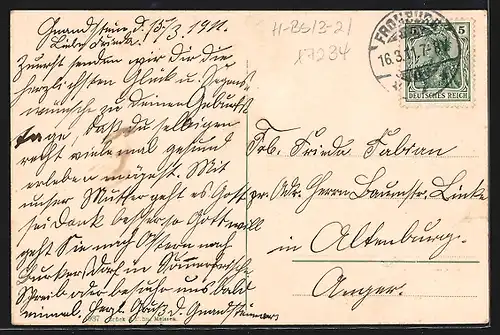 Gnandstein, d. 15/3 1911.
Liebe Frieda.
Zuerst senden wir dir die
herzlichsten Glück u. Segens-
wünsche zu deinen Geburts
tage, daß du selbigen
recht viele mal gesund
erleben mögest. Mit
unser Mutter geht es Gott
sei Dank besser so Gott will
geht Sie nach Ostern nach
Schreib oder besuche uns bald
einmal. Herzl. Grüße d. Gnandsteiner
H-BS/3-2/
x7234
FROHBURG
16.3.11. 7-8V
5
DEUTSCHES REICH
Frb. Frieda Fabian
pr. Adr. Herrn Baumstr. Linke
in Altenburg.
Anger.